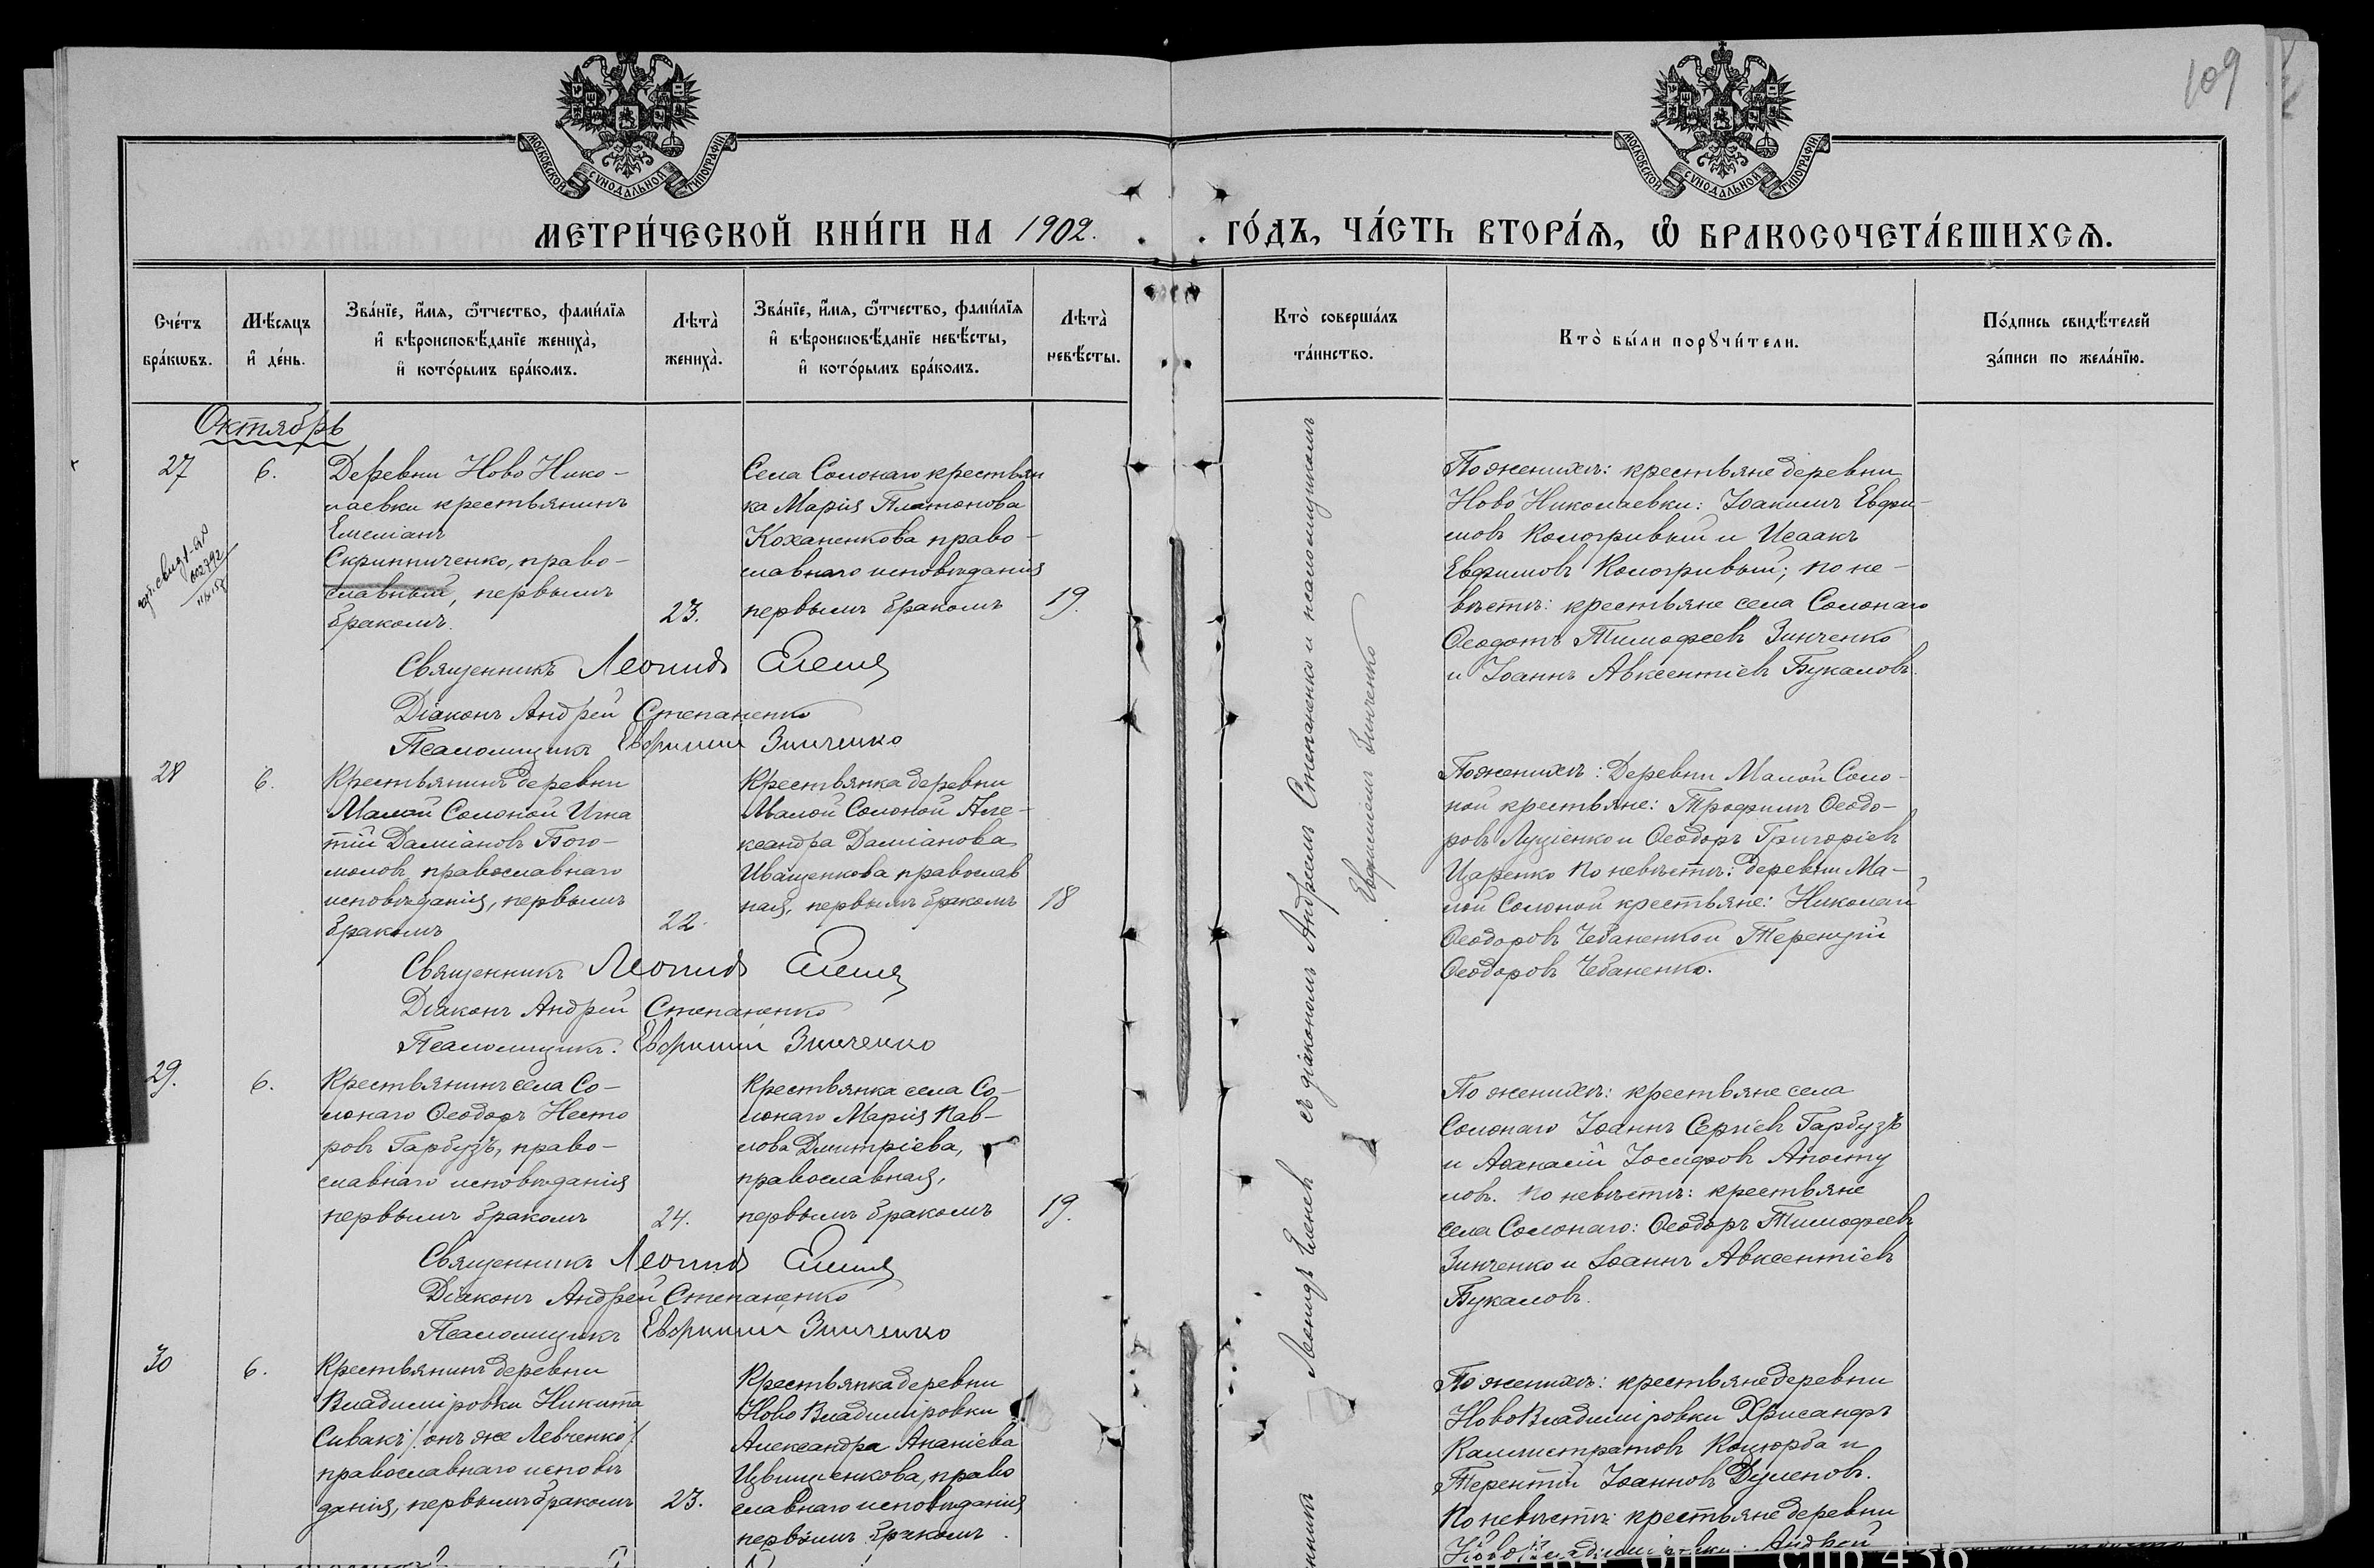 109
МОСКОВСКОЙ СѴНОДАЛЬНОЙ ТИПОГРАФІИ
МОСКОВСКОЙ СѴНОДАЛЬНОЙ ТИПОГРАФІИ
МЕТРИ́ЧЕСКОЙ КНИ́ГИ НА 1902.
ГО́ДЪ, ЧА́СТЬ ВТОРА́Ѧ, Ѽ БРАКОСОЧЕТА́ВШИХСѦ.
Сче́тъ
бра́кѡвъ.
Мѣ́сяцъ
и҆ де́нь.
Зва́нїе, и҆́мѧ, ѻ҆́тчество, фами́лїѧ
и҆ вѣроисповѣ́данїе женихà,
и҆ кото́рымъ бра́комъ.
Лѣтà
женихà.
Зва́нїе, и҆́мѧ, ѻ҆́тчество, фами́лїѧ
и҆ вѣроисповѣ́данїе невѣ́сты,
и҆ кото́рымъ бра́комъ.
Лѣтà
невѣ́сты.
Кто̀ соверша́лъ
та́инство.
Кто̀ бы́ли порꙋчи́тели.
По́дпись свидѣ́телей
за́писи по жела́нїю.
Октябрь
27
6.
Деревни Ново Нико-
лаевки крестьянинъ
Емеліанъ
Скрипниченко, право-
славный, первымъ
бракомъ.
23.
Села Солонаго крестьян
ка Марія Платонова
Коханенкова право-
славнаго исповѣданія
первымъ бракомъ
19.
По женихѣ: крестьяне деревни
Ново Николаевки: Іоакимъ Евфи-
мовъ Кологривый и Исаакъ
Евфимовъ Кологривый; по не-
вѣстѣ: крестьяне села Солонаго
Ѳеодотъ Тимофеевъ Зинченко
и Іоаннъ Авксентіевъ Букаловъ.
Священникъ Леонидъ
Діаконъ Андрей Степаненко
Псаломщикъ Евфимій Зинченко
28
6.
Крестьянинъ деревни
Малой Солоной Игна
тій Даміановъ Бого-
моловъ, православнаго
исповѣданія, первымъ
бракомъ
22.
Крестьянка деревни
Малой Солоной Але-
ксандра Даміанова
Иващенкова православ
ная, первымъ бракомъ
18
По женихѣ: Деревни Малой Соло-
ной крестьяне: Трофимъ Ѳеодо-
ровъ Луценко и Ѳеодоръ Григоріевъ
Царенко по невѣстѣ: деревни Ма-
лой Солоной крестьяне: Николай
Ѳеодоровъ Чебаненко и Терентій
Ѳеодоровъ Чебаненко.
Священникъ Леонидъ
Діаконъ Андрей Степаненко
Псаломщикъ. Евфимій Зинченко
29.
6.
Крестьянинъ села Со-
лонаго Ѳеодоръ Несто
ровъ Гарбузъ, право-
славнаго исповѣданія
первымъ бракомъ
24.
Крестьянка села Со-
лонаго Марія Пав-
лова Дмитріева,
православная,
первымъ бракомъ
19.
По женихѣ: крестьяне села
Солонаго Іоаннъ Сергіевъ Гарбузъ
и Аѳанасій Іосифовъ Апосту
ловъ. по невѣстѣ: крестьяне
села Солонаго: Ѳеодоръ Тимофеевъ
Зинченко и Іоаннъ Авксентіевъ
Букаловъ.
Священникъ Леонидъ
Діаконъ Андрей Степаненко
Псаломщикъ Евфимій Зинченко
30
6.
Крестьянинъ деревни
Владиміровки Никита
Сивакъ /онъ же Левченко/
православнаго исповѣ
данія, первымъ бракомъ
23.
Крестьянка деревни
Ново Владиміровки
Александра Ананіева
православнаго исповѣданія
первымъ бракомъ.
По женихѣ: крестьяне деревни
НовоВладиміровки Хрисанфъ
Каллистратовъ Коцюрба и
Терентій Іоанновъ
По невѣстѣ: крестьяне деревни
Леонидъ съ діакономъ Андреемъ Степаненко и псаломщикомъ
Евфиміемъ Зинченко